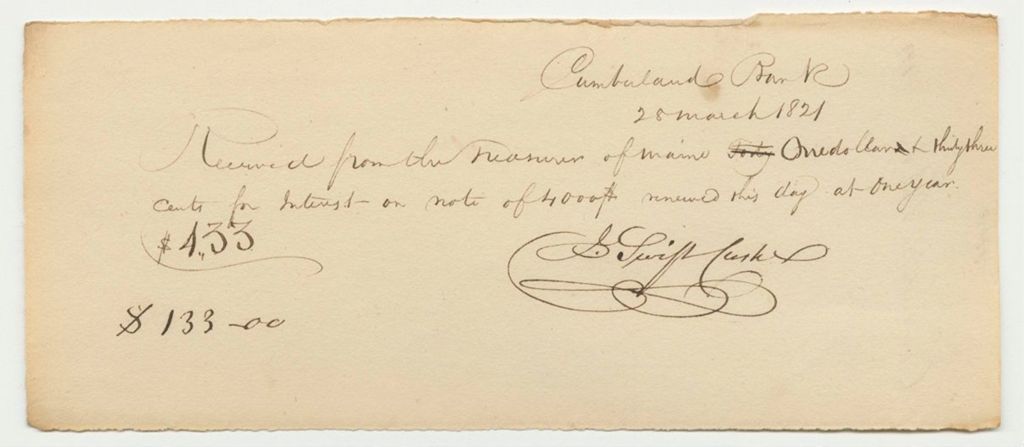 Cumberland Bank
28 March 1821
Received from the Treasurer of Maine One dollar & thirty three
cents for Interest on note of 4000$ renewed this day at One year.
$ 1,33
Swift Cashr
$ 133-00